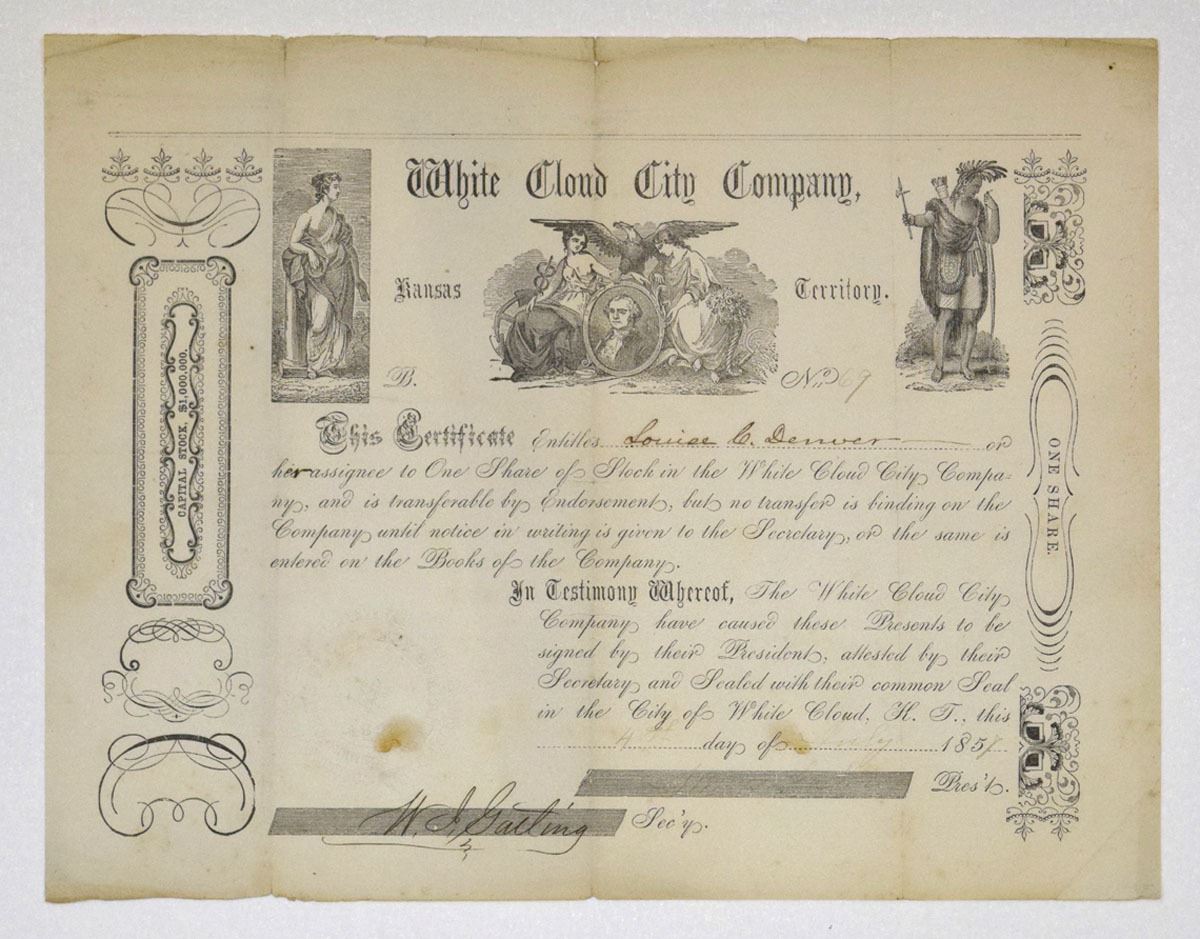 White Cloud City Company,
Kansas Territory.
B. No. 69
This Certificate Entitles Louise C. Denver or
her assignee to One Share of Stock in the White Cloud City Compa-
ny, and is transferable by Endorsement, but no transfer is binding on the
Company until notice in writing is given to the Secretary, or the same is
entered on the Books of the Company.
In Testimony Whereof, The White Cloud City
Company have caused these Presents to be
signed by their President, attested by their
Secretary and Sealed with their common Seal
in the City of White Cloud, K. T., this
day of 1857
Pres't.
W. J. Gatling Sec'y.
CAPITAL STOCK, $1,000,000.
ONE SHARE.